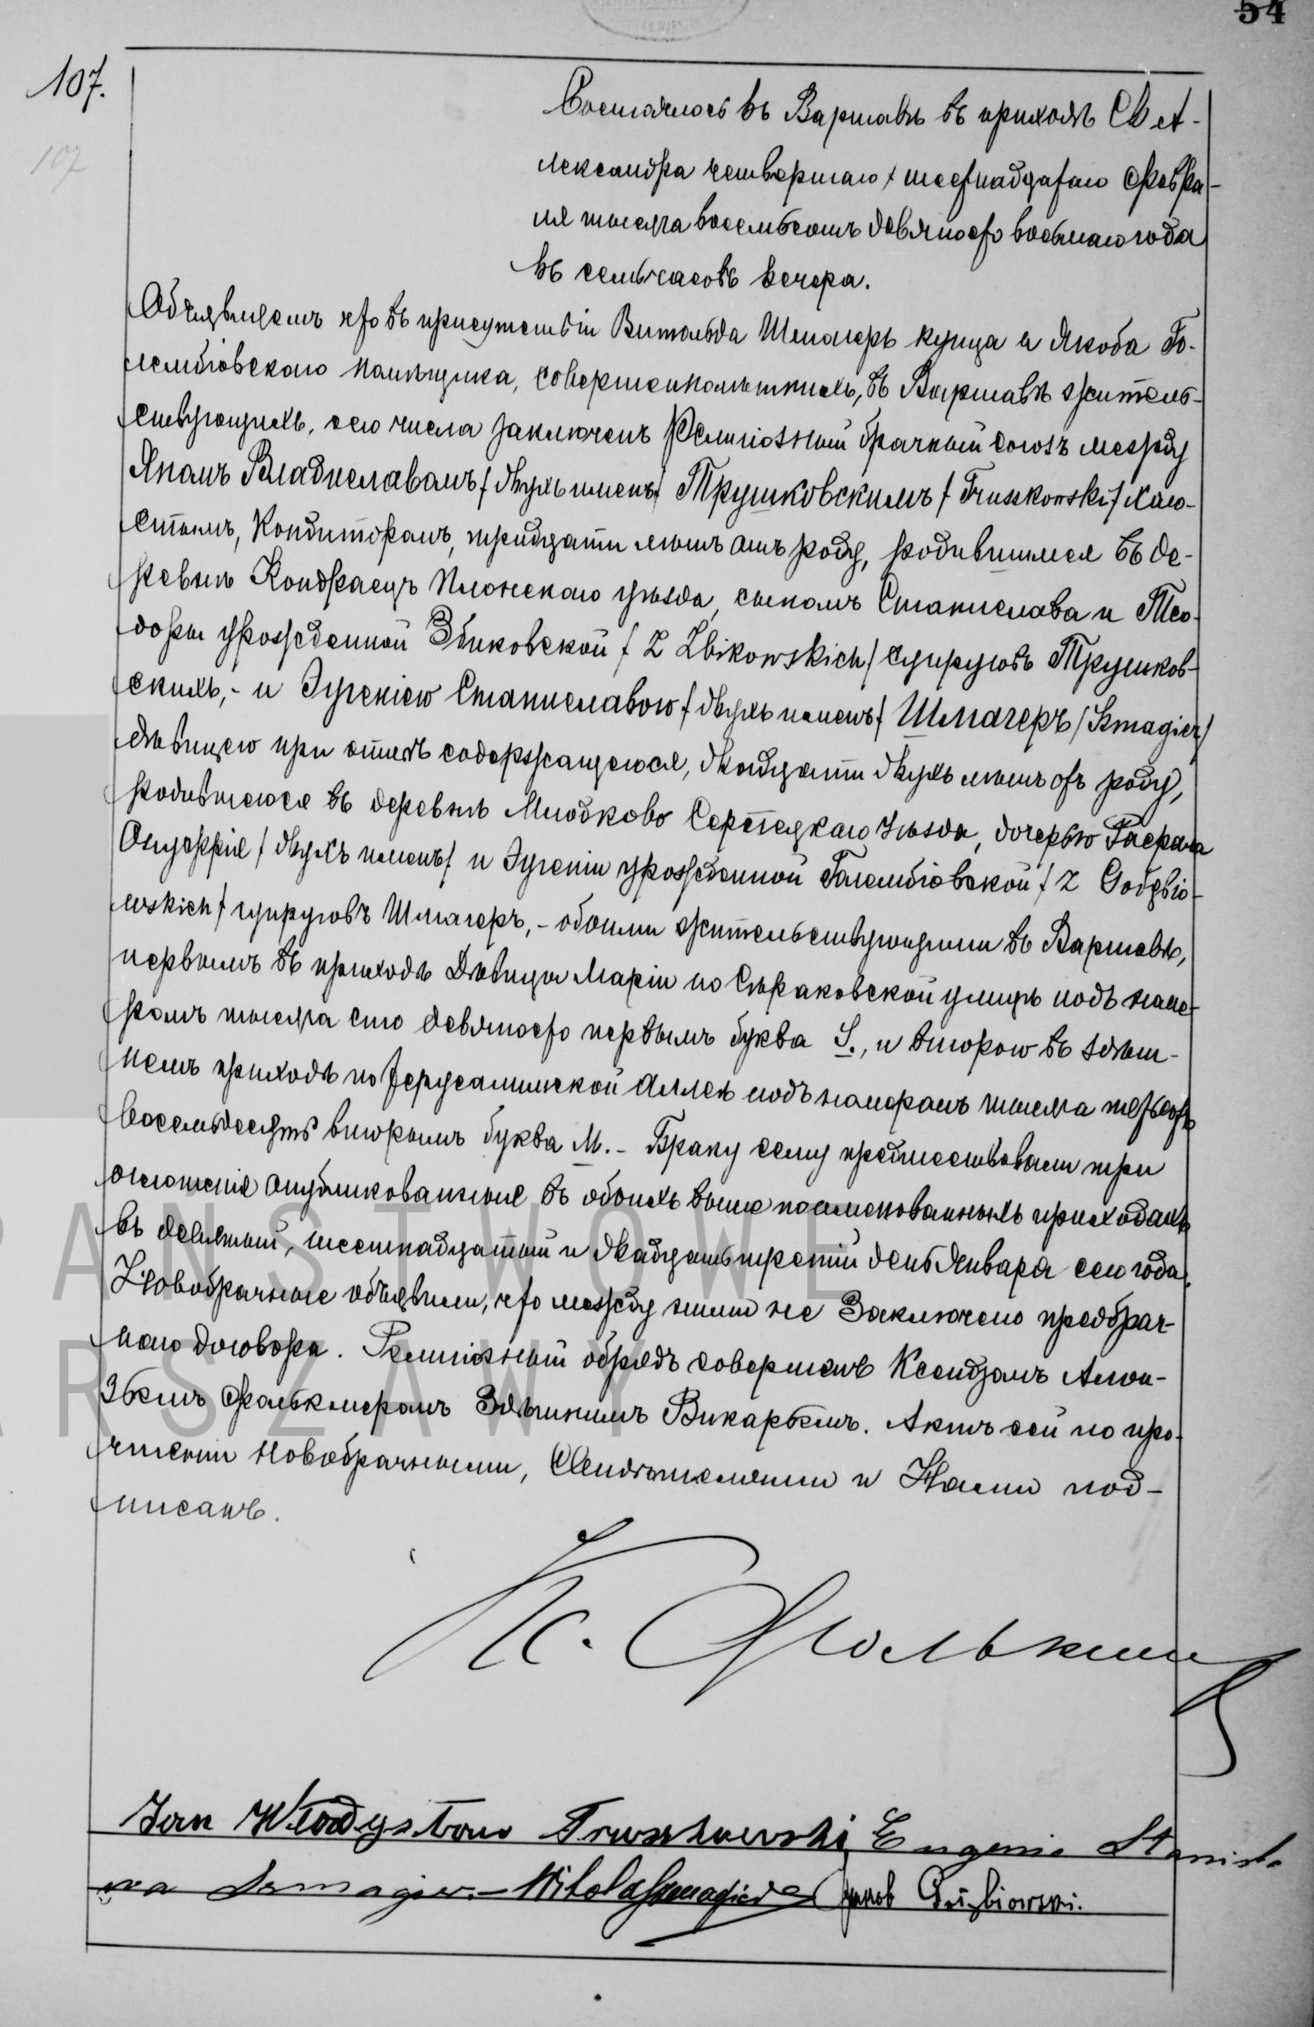 54
107.
107
Состоялось въ Варшавѣ въ приходѣ Св А-
лександра четвертаго / шестнадцатаго Февра-
ля тысяча восемьсотъ девяносто восьмаго года
въ семь часовъ вечера.
Объявляемъ что въ присутствіи Витольда Шмагеръ купца и Якоба Го-
лембіовскаго помѣщика, совершеннолѣтнихъ, въ Варшавѣ житель-
ствующихъ, сего числа заключенъ Религіозный брачный союзъ между
Яномъ Владиславомъ / двухъ именъ / Трушковскимъ / Truszkowski / холо-
стымъ, Кондиторомъ, тридцати лѣтъ отъ роду, родившимся въ де-
ревнѣ Кондраецъ Плонскаго уѣзда, сыномъ Станислава и Тео-
доры урожденной Збиковской / z Zbikowskich / супруговъ Трушков-
скихъ, - и Эугеніею Станиславою / двухъ именъ / Шмагеръ / Szmagier /
дѣвицею при отцѣ содержащеюся, двадцати двухъ лѣтъ отъ роду,
родившеюся въ деревнѣ Млодково Серпецкаго Уѣзда, дочерью
Онуфрія / двухъ именъ / и Эугеніи урожденной Голембіовской / z Gołębio-
wskich / супруговъ Шмагеръ, - обоими жительствующими въ Варшавѣ,
первымъ въ приходѣ Дѣвицы Маріи по Сѣраковской улицѣ подъ номе-
ромъ тысяча сто девяносто первымъ буква S., и второю въ здѣш-
немъ приходѣ по Іерусалимской Аллеѣ подъ номеромъ тысяча
восемьдесятъ вторымъ буква М. - Браку сему предшествовали три
оглашенія опубликованныя въ обоихъ выше поименованныхъ приходахъ
въ девятый, шестнадцатый и двадцать третій день Января сего года.
Новобрачные объявили, что между ними не Заключено предбрач-
наго договора. Религіозный обрядъ совершенъ Ксендзомъ Алои-
зымъ Фолькмеромъ Здѣшнимъ Викаріемъ. Актъ сей по про-
чтеніи Новобрачными, Свидѣтелями и Нами под-
писанъ.
К. Фолькмер
Jan Władysław Truszkowski Eugenia Stanisła
wa Szmagier. - Witold Szmagier Jakób Gołębiowski.
PAŃSTWOWE
WARSZAWY